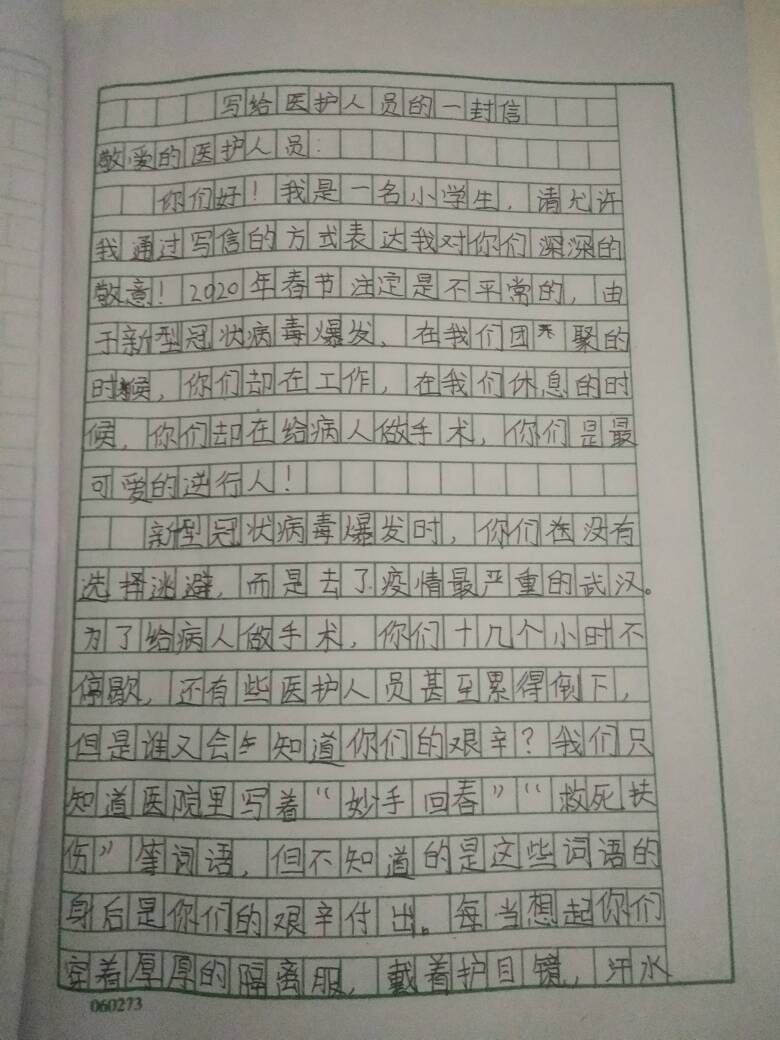 写给医护人员的一封信
敬爱的医护人员：
你们好！我是一名小学生，请允许
我通过写信的方式表达我对你们深深的
敬意！2020年春节注定是不平常的，由
于新型冠状病毒爆发，在我们团聚的
时候，你们却在工作，在我们休息的时
候，你们却在给病人做手术，你们是最
可爱的逆行人！
新型冠状病毒爆发时，你们没有
选择逃避，而是去了疫情最严重的武汉。
为了给病人做手术，你们十几个小时不
停歇，还有些医护人员甚至累得倒下，
但是谁又会知道你们的艰辛？我们只
知道医院里写着“妙手回春”“救死扶
伤”等词语，但不知道的是这些词语的
身后是你们的艰辛付出。每当想起你们
穿着厚厚的隔离服，戴着护目镜，汗水
060273